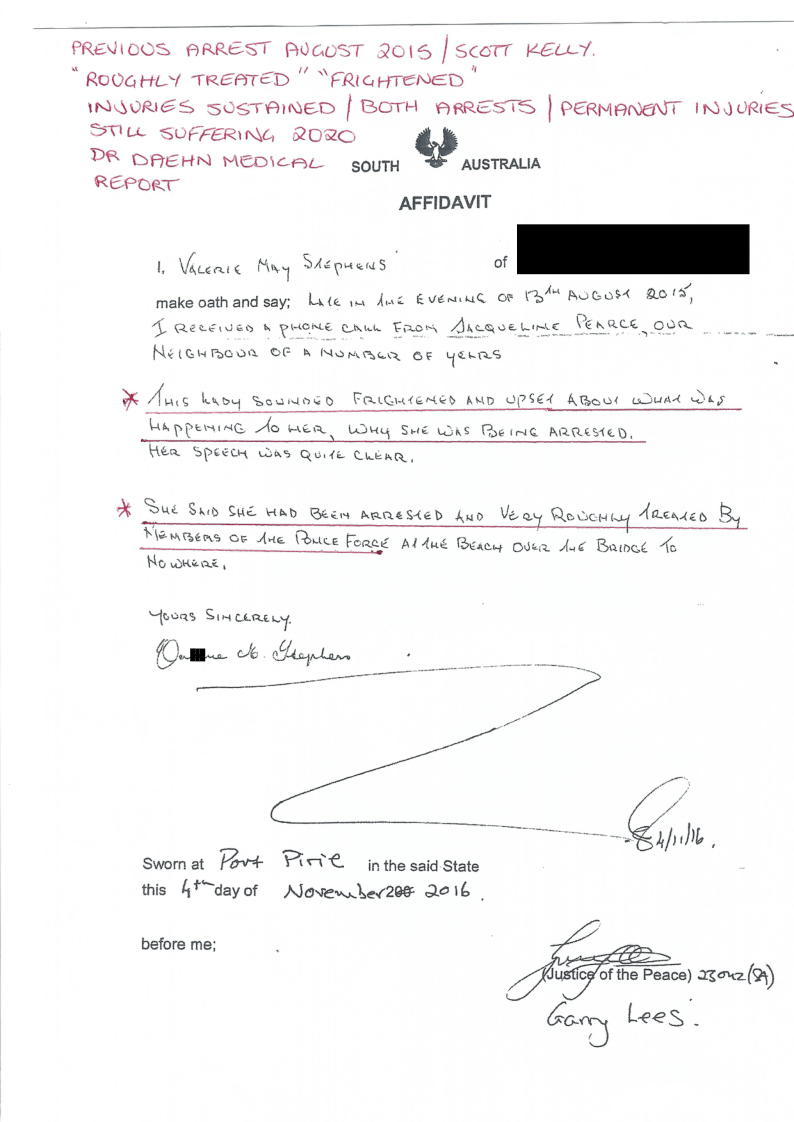 PREVIOUS ARREST AUGUST 2015 / SCOTT KELLY.
"ROUGHLY TREATED" "FRIGHTENED"
INJURIES SUSTAINED / BOTH ARRESTS / PERMANENT INJURIES
STILL SUFFERING 2020
DR DAEHN MEDICAL
REPORT
SOUTH AUSTRALIA
AFFIDAVIT
I, VALERIE MAY STEPHENS of
make oath and say; LATE IN THE EVENING OF 13TH AUGUST 2015,
I RECEIVED A PHONE CALL FROM JACQUELINE PEARCE, OUR
NEIGHBOUR OF A NUMBER OF YEARS
* THIS LADY SOUNDED FRIGHTENED AND UPSET ABOUT WHAT WAS
HAPPENING TO HER, WHY SHE WAS BEING ARRESTED.
HER SPEECH WAS QUITE CLEAR.
* SHE SAID SHE HAD BEEN ARRESTED AND VERY ROUGHLY TREATED BY
MEMBERS OF THE POLICE FORCE AT THE BEACH OVER THE BRIDGE TO
NOWHERE.
YOURS SINCERELY.
M. Stephens
4/11/16.
Sworn at Port Pirie in the said State
this 4th day of November 200 2016.
before me;
(Justice of the Peace) 23042 (SA)
Garry Lees.